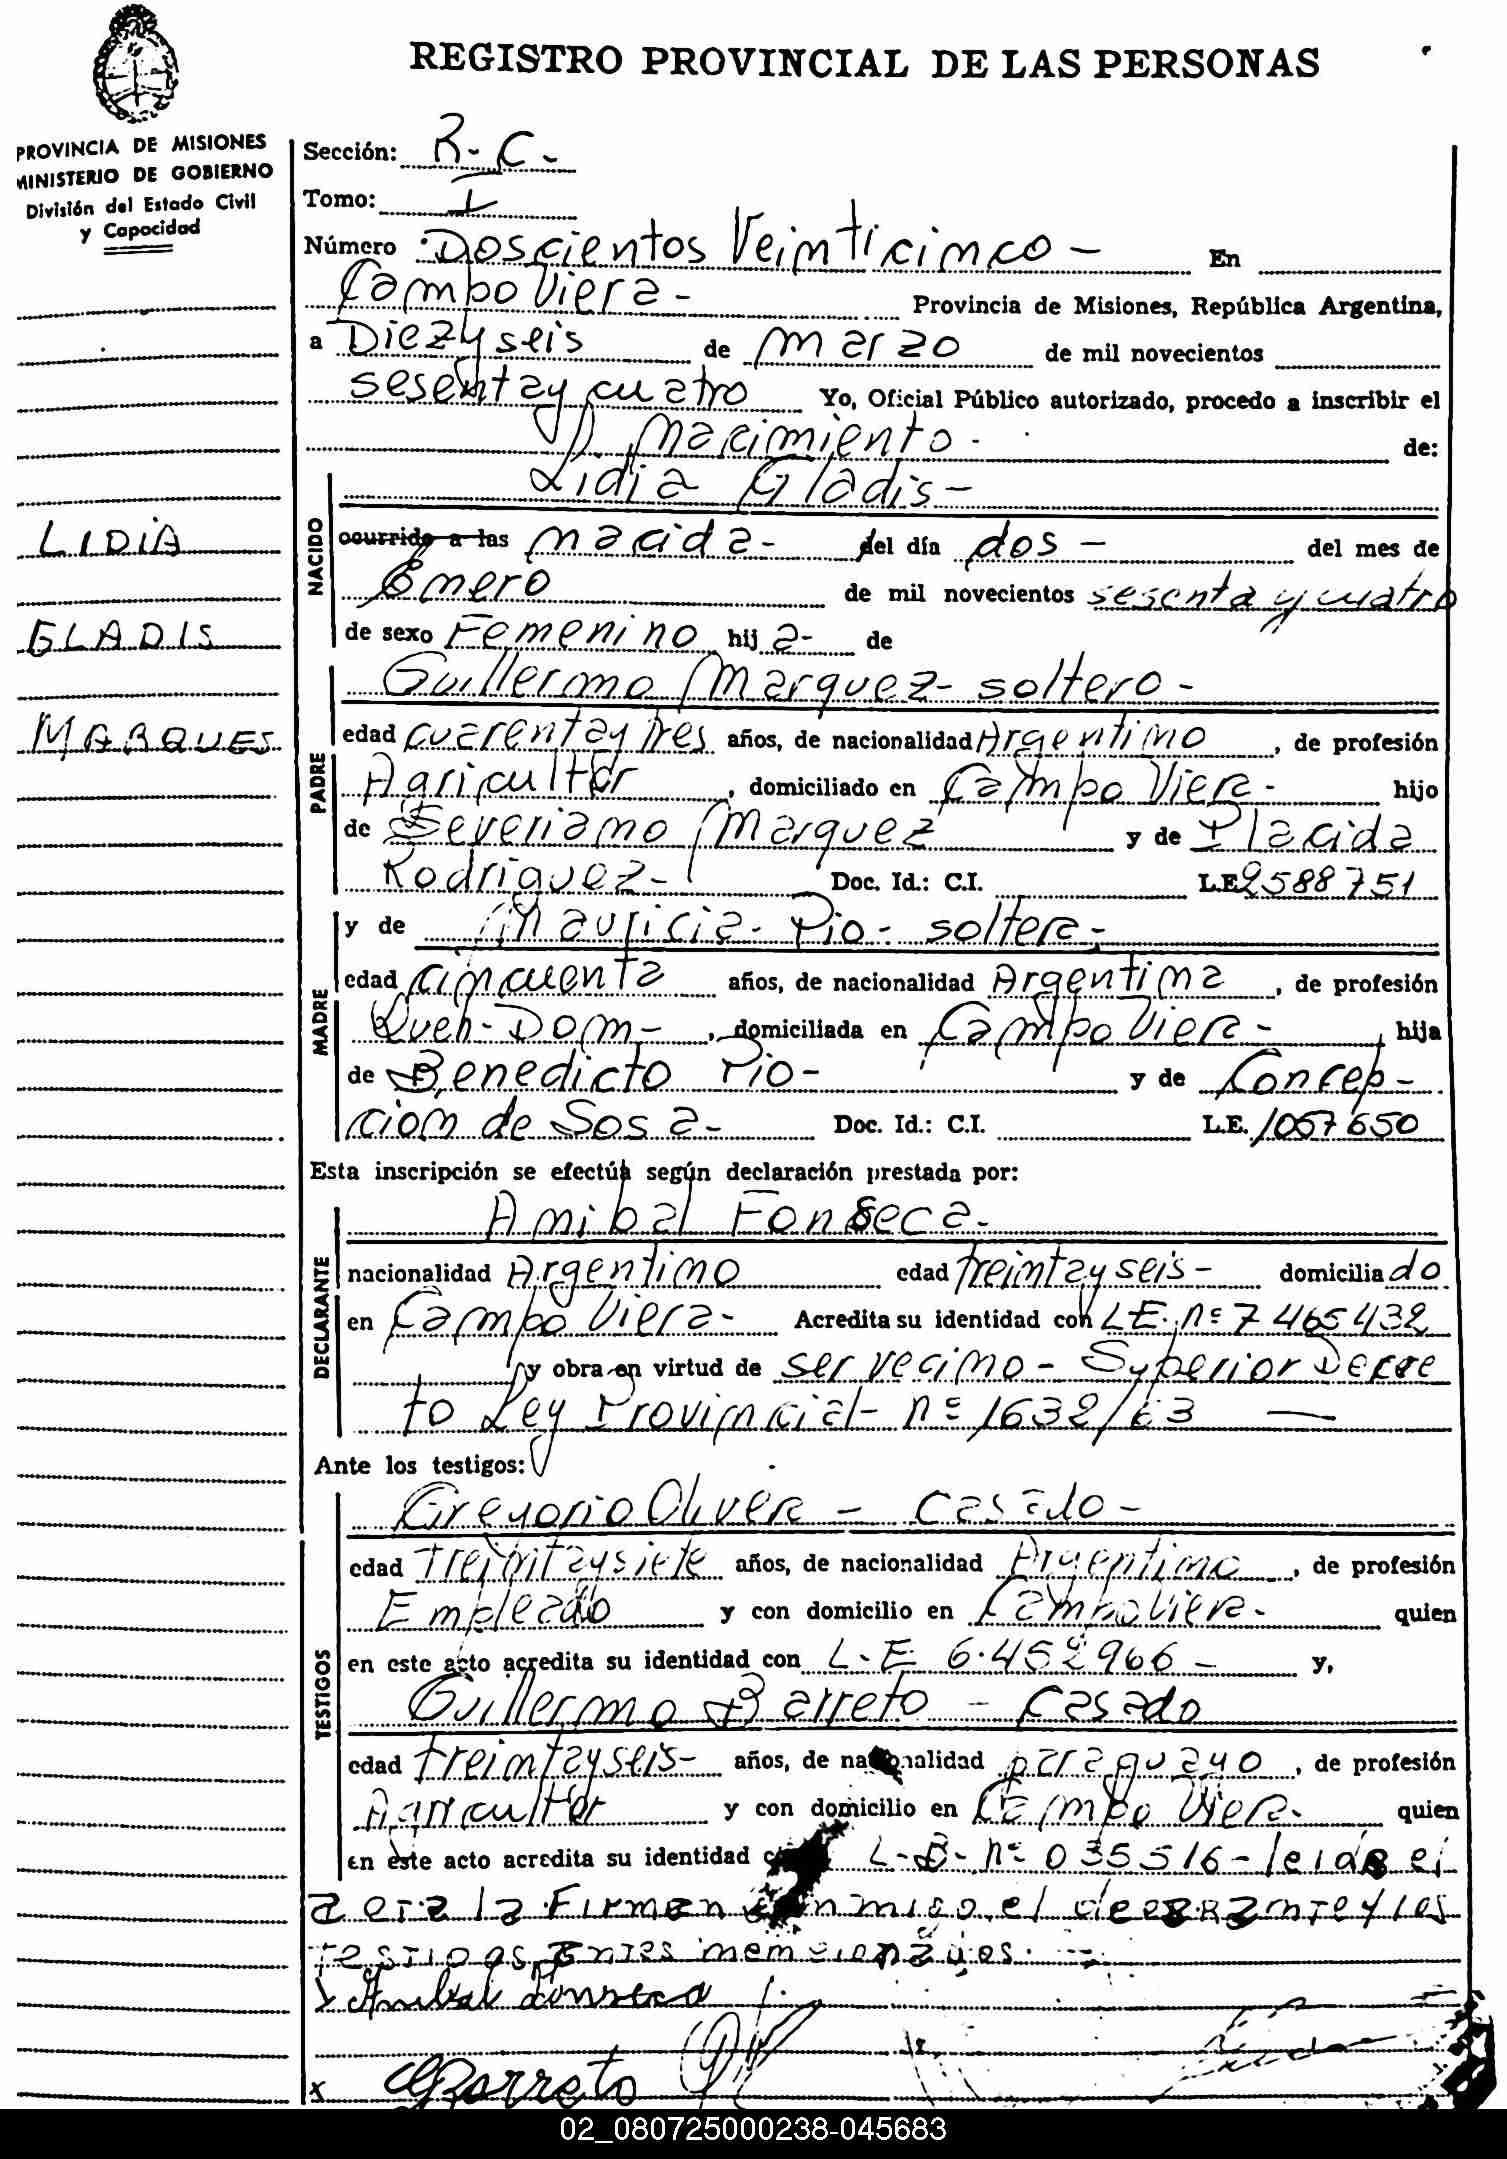 REGISTRO PROVINCIAL DE LAS PERSONAS
PROVINCIA DE MISIONES
MINISTERIO DE GOBIERNO
División del Estado Civil
y Capacidad
Sección: R-C-
Tomo: I
Número Doscientos Veinticinco - En
Campo Viera - Provincia de Misiones, República Argentina,
a Diez y seis de marzo de mil novecientos
sesenta y cuatro Yo, Oficial Público autorizado, procedo a inscribir el
Nacimiento - de:
Lidia Gladis -
LIDIA
GLADIS
MARQUES
NACIDO
ocurrido a las nacida - del día dos - del mes de
Enero de mil novecientos sesenta y cuatro
de sexo Femenino hija - de
PADRE
Guillermo Marquez - soltero -
edad cuarenta y tres años, de nacionalidad Argentino, de profesión
Agricultor, domiciliado en Campo Viera - hijo
de Severiano Marquez y de Placida
Rodriguez - Doc. Id.: C.I. L.E. 2588751
MADRE
y de Mauricia - Pio - soltera -
edad cincuenta años, de nacionalidad Argentina, de profesión
Queh - Dom -, domiciliada en Campo Viera - hija
de Benedicto Pio - y de Concep-
cion de Sosa - Doc. Id.: C.I. L.E. 1057650
Esta inscripción se efectúa según declaración prestada por:
DECLARANTE
Anibal Fonseca -
nacionalidad Argentino edad treinta y seis - domiciliado
en Campo Viera - Acredita su identidad con L.E. nº 7465432
y obra en virtud de ser vecino - Superior Decre
to Ley Provincial - nº 1632/63 —
Ante los testigos:
TESTIGOS
Gregorio Olivera - Casado -
edad Treinta y siete años, de nacionalidad Argentino, de profesión
Empleado y con domicilio en Campo Viera - quien
en este acto acredita su identidad con L.E 6.452966 - y,
Guillermo Barreto - Casado
edad treinta y seis - años, de nacionalidad paraguayo, de profesión
Agricultor y con domicilio en Campo Viera - quien
en este acto acredita su identidad L-B- nº 035516 - leida el
acta la Firman conmigo el declarante y los
testigos antes mencionados.
x Anibal Fonseca
x GBarreto
02_080725000238-045683